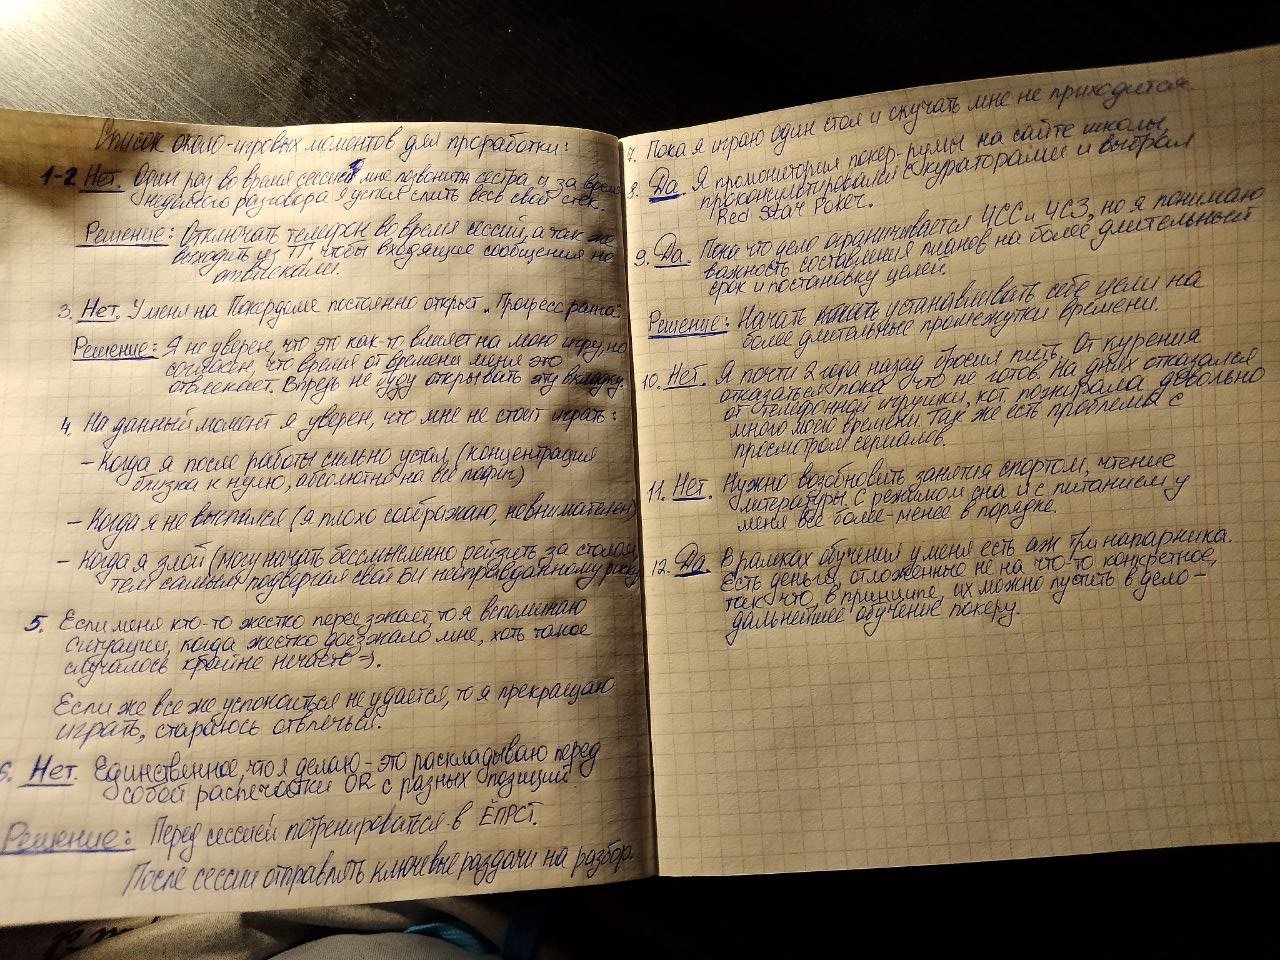 Список около-игровых моментов для проработки:
1-2 Нет. Один раз во время сессии мне позвонила сестра и за время
недолгого разговора я успел слить весь свой стек.
Решение: Отключать телефон во время сессий, а так же
выходить из ТГ, чтобы входящие сообщения не
отвлекали.
3. Нет. У меня на Покердоме постоянно открыт "Прогресс рапта".
Решение: Я не уверен, что это как-то влияет на мою игру, но
согласен, что время от времени меня это
отвлекает. Впредь не буду открывать эту вкладку.
4. На данный момент я уверен, что мне не стоит играть:
- Когда я после работы сильно устал (концентрация
близка к нулю, абсолютно на все пофиг)
- Когда я не выспался (я плохо соображаю, невнимателен)
- Когда я злой (могу начать бессмысленно рейзить за столом,
тем самым подвергая свой БИ неоправданному риску
5. Если меня кто-то жестко переезжает, то я вспоминаю
ситуации, когда жестко доезжало мне, хоть такое
случалось крайне нечасто =).
Если же все же успокоиться не удается, то я прекращаю
играть, стараюсь отвлечься.
6. Нет. Единственное, что я делаю - это раскладываю перед
собой распечатки OR с разных позиций.
Решение: Перед сессией потренироваться в ЁПРСТ.
После сессии отправлять ключевые раздачи на разбор.
7. Пока я играю один стол и скучать мне не приходится.
8. Да. Я промониторил покер-румы на сайте школы,
проконсультировался с кураторами и выбрал
Red Star Poker.
9. Да. Пока что дело ограничивается ЧСС и ЧСЗ, но я понимаю
важность составления планов на более длительный
срок и постановку целей.
Решение: Начать устанавливать себе цели на
более длительные промежутки времени.
10. Нет. Я почти 2 года назад бросил пить. От курения
отказаться пока что не готов. На днях отказался
от телефонной игрушки, кот. пожирала довольно
много моего времени. Так же есть проблема с
просмотром сериалов.
11. Нет. Нужно возобновить занятия спортом, чтение
литературы. С режимом сна и с питанием у
меня все более-менее в порядке.
12. Да. В рамках обучения у меня есть аж три напарника.
Есть деньги, отложенные не на что-то конкретное,
так что, в принципе, их можно пустить в дело -
дальнейшее обучение покеру.